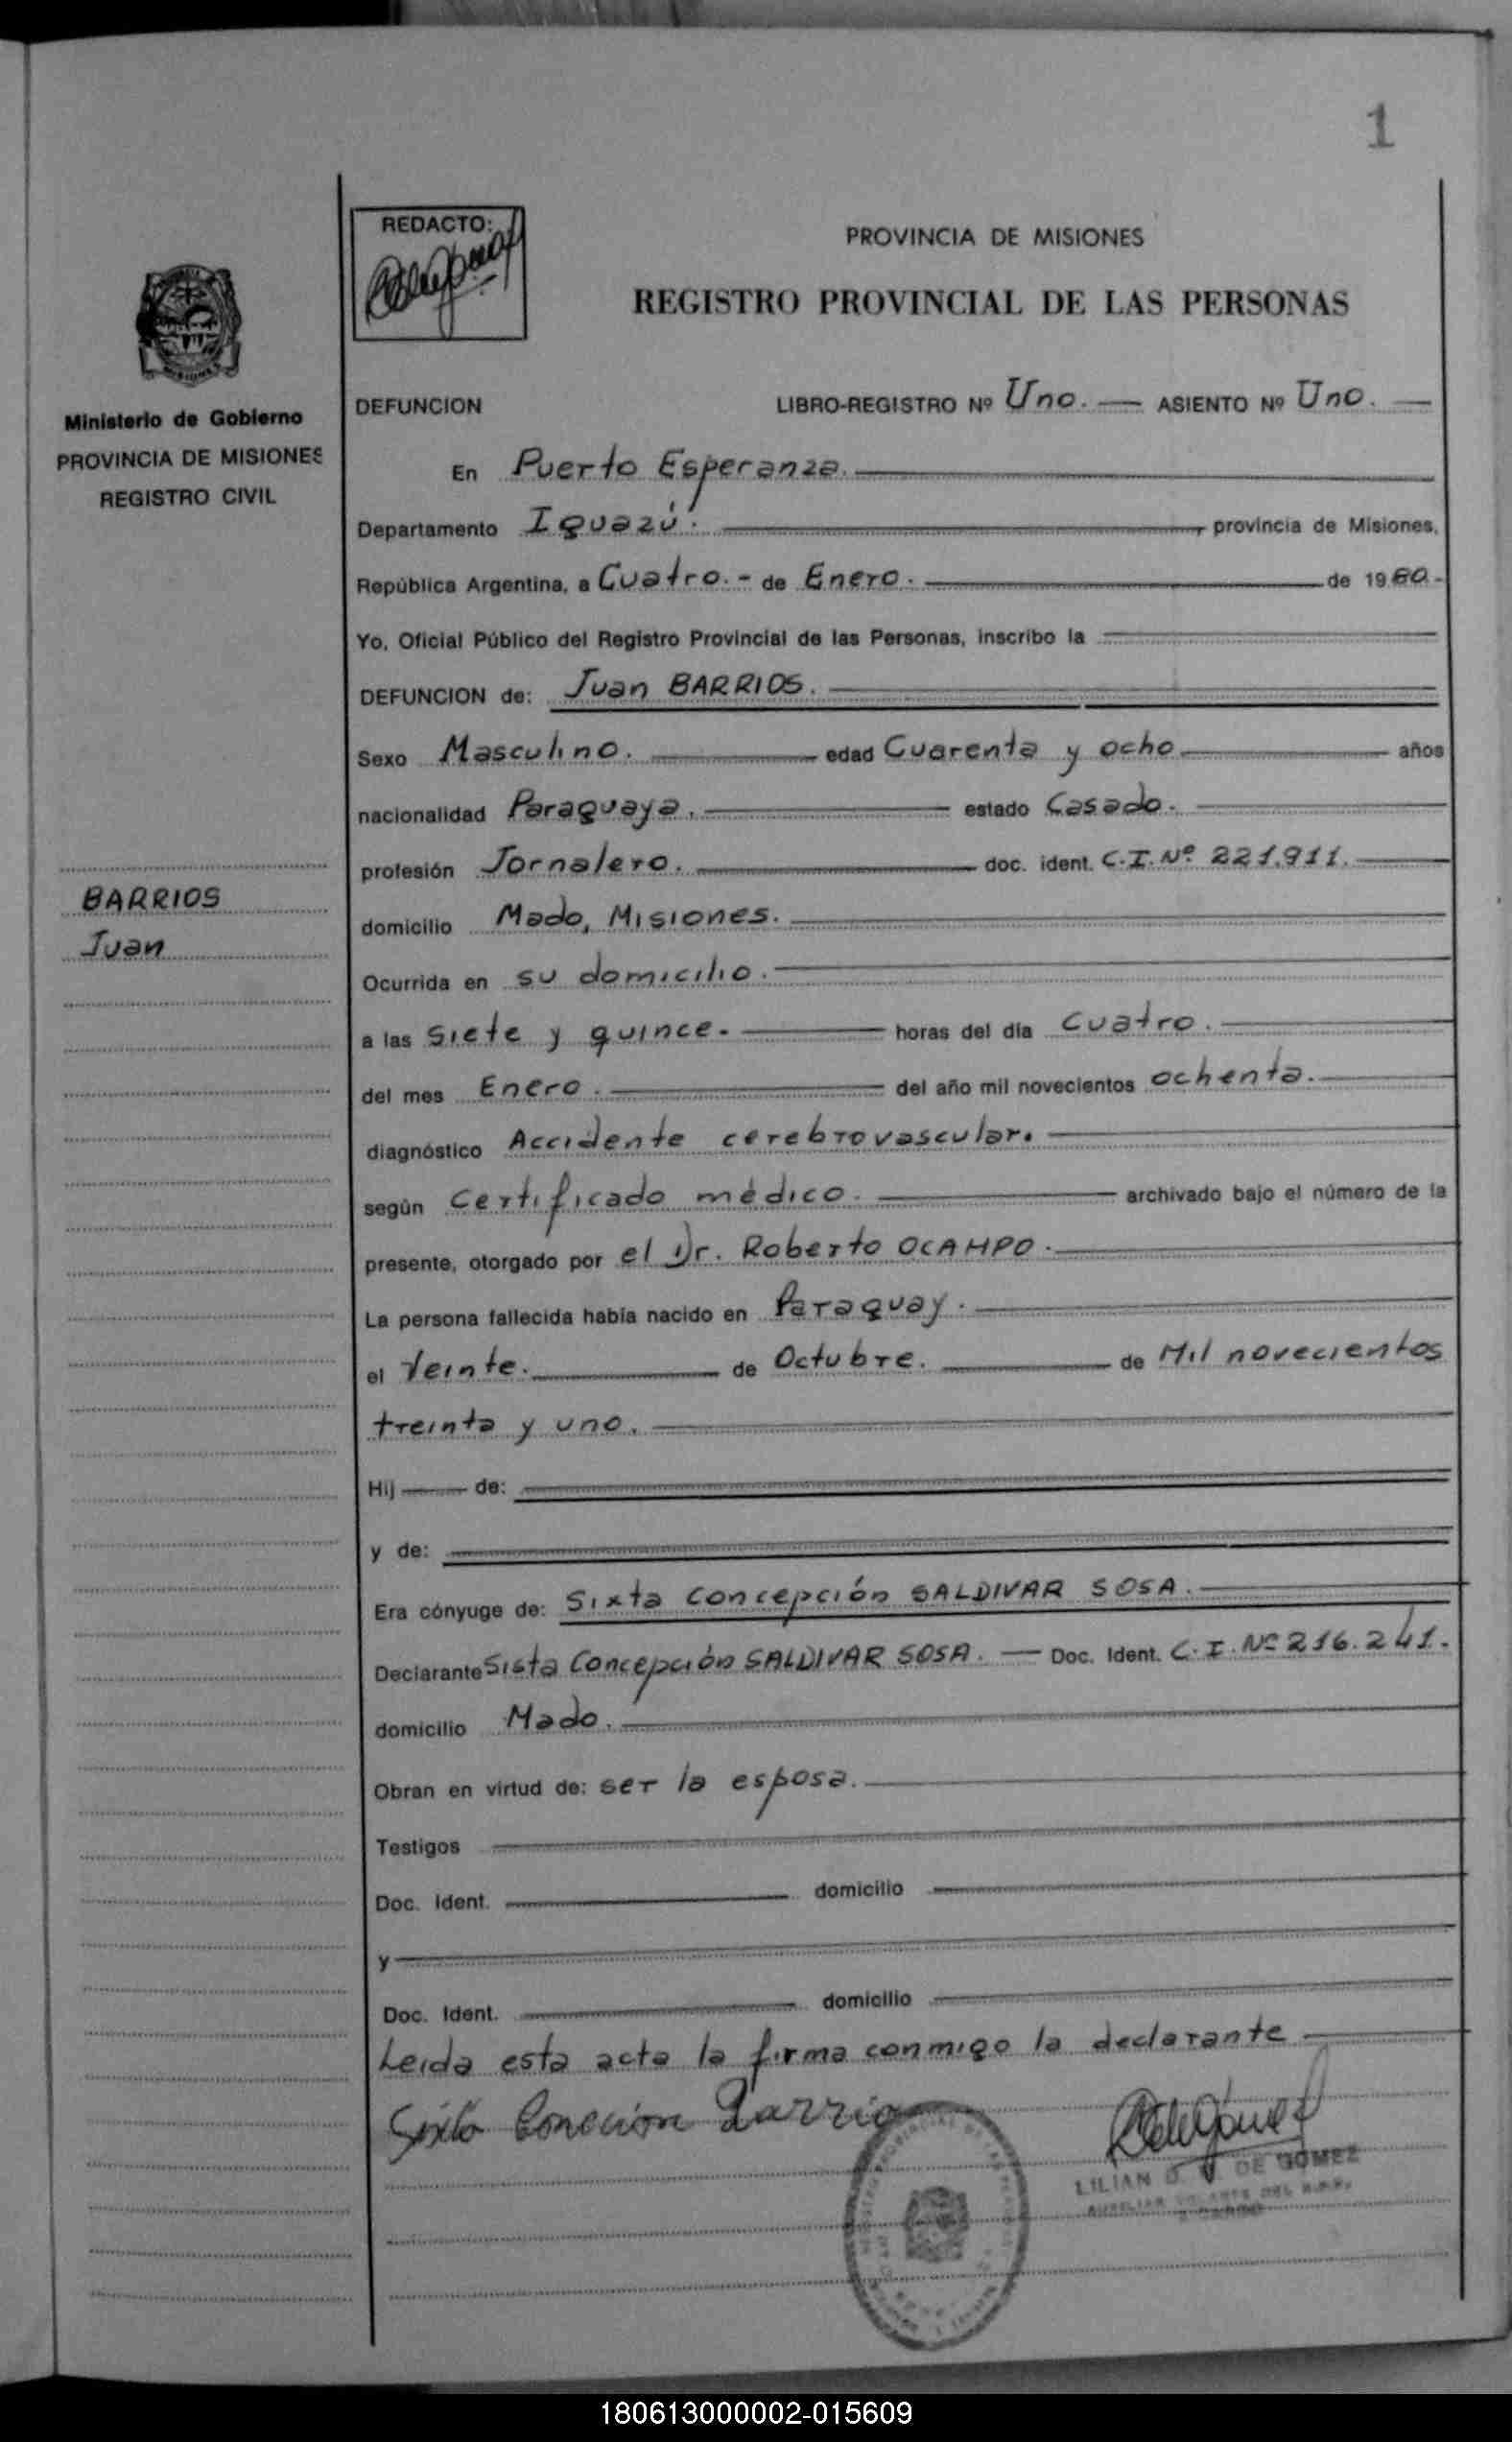 1
REDACTO:
PROVINCIA DE MISIONES
REGISTRO PROVINCIAL DE LAS PERSONAS
MISIONES
Ministerio de Gobierno
PROVINCIA DE MISIONES
REGISTRO CIVIL
DEFUNCION LIBRO-REGISTRO Nº Uno. — ASIENTO Nº Uno. —
En Puerto Esperanza.
Departamento Iguazú. , provincia de Misiones,
República Argentina, a Cuatro.- de Enero. de 1980.-
Yo, Oficial Público del Registro Provincial de las Personas, inscribo la
DEFUNCION de: Juan BARRIOS.
Sexo Masculino. edad Cuarenta y ocho años
nacionalidad Paraguaya. estado Casado.
profesión Jornalero. doc. ident. C.I. Nº 221.911.
BARRIOS
Juan
domicilio Mado, Misiones.
Ocurrida en su domicilio.
a las siete y quince. horas del día Cuatro.
del mes Enero. del año mil novecientos ochenta.
diagnóstico Accidente cerebrovascular.
según Certificado médico. archivado bajo el número de la
presente, otorgado por el Dr. Roberto OCAMPO.
La persona fallecida había nacido en Paraguay.
el Veinte. de Octubre. de Mil novecientos
treinta y uno.
Hij de:
y de:
Era cónyuge de: Sixta Concepción SALDIVAR SOSA.
Declarante Sista Concepción SALDIVAR SOSA. — Doc. Ident. C.I. Nº 216.241.
domicilio Mado.
Obran en virtud de: ser la esposa.
Testigos
Doc. Ident. domicilio
y
Doc. Ident. domicilio
Leida esta acta la firma conmigo la declarante
LILIAN DE GOMEZ
180613000002-015609